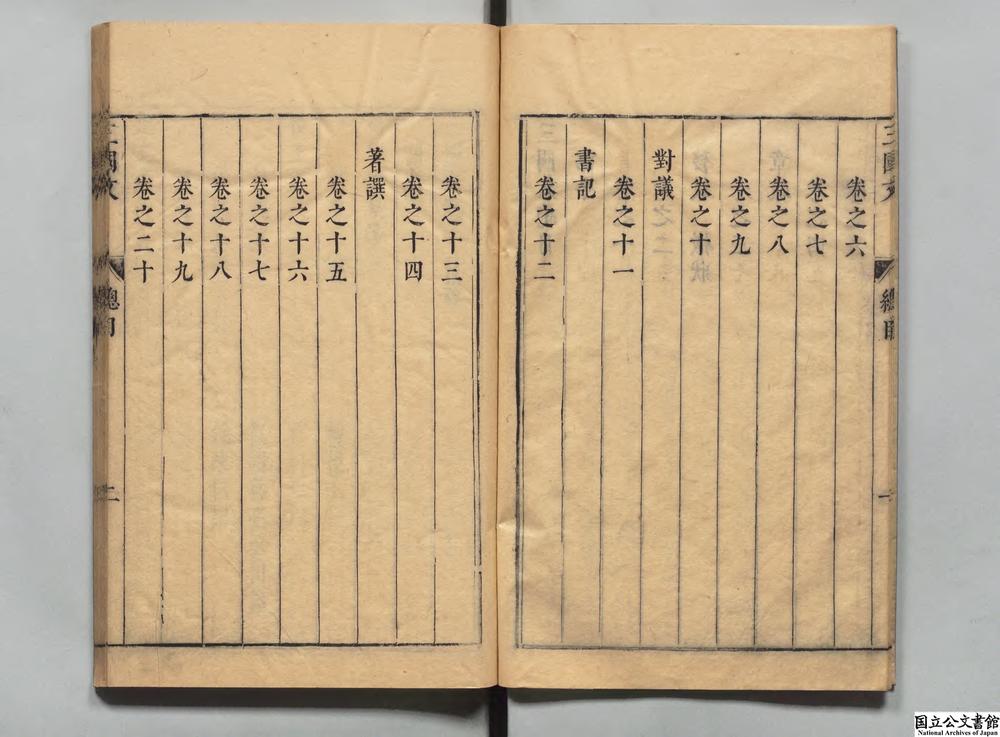 三國文
總目
一
卷之六
卷之七
卷之八
卷之九
卷之十
對議
卷之十一
書記
卷之十二
卷之十三
卷之十四
著譔
卷之十五
卷之十六
卷之十七
卷之十八
卷之十九
卷之二十
三國文
總目
二
国立公文書館
National Archives of Japan